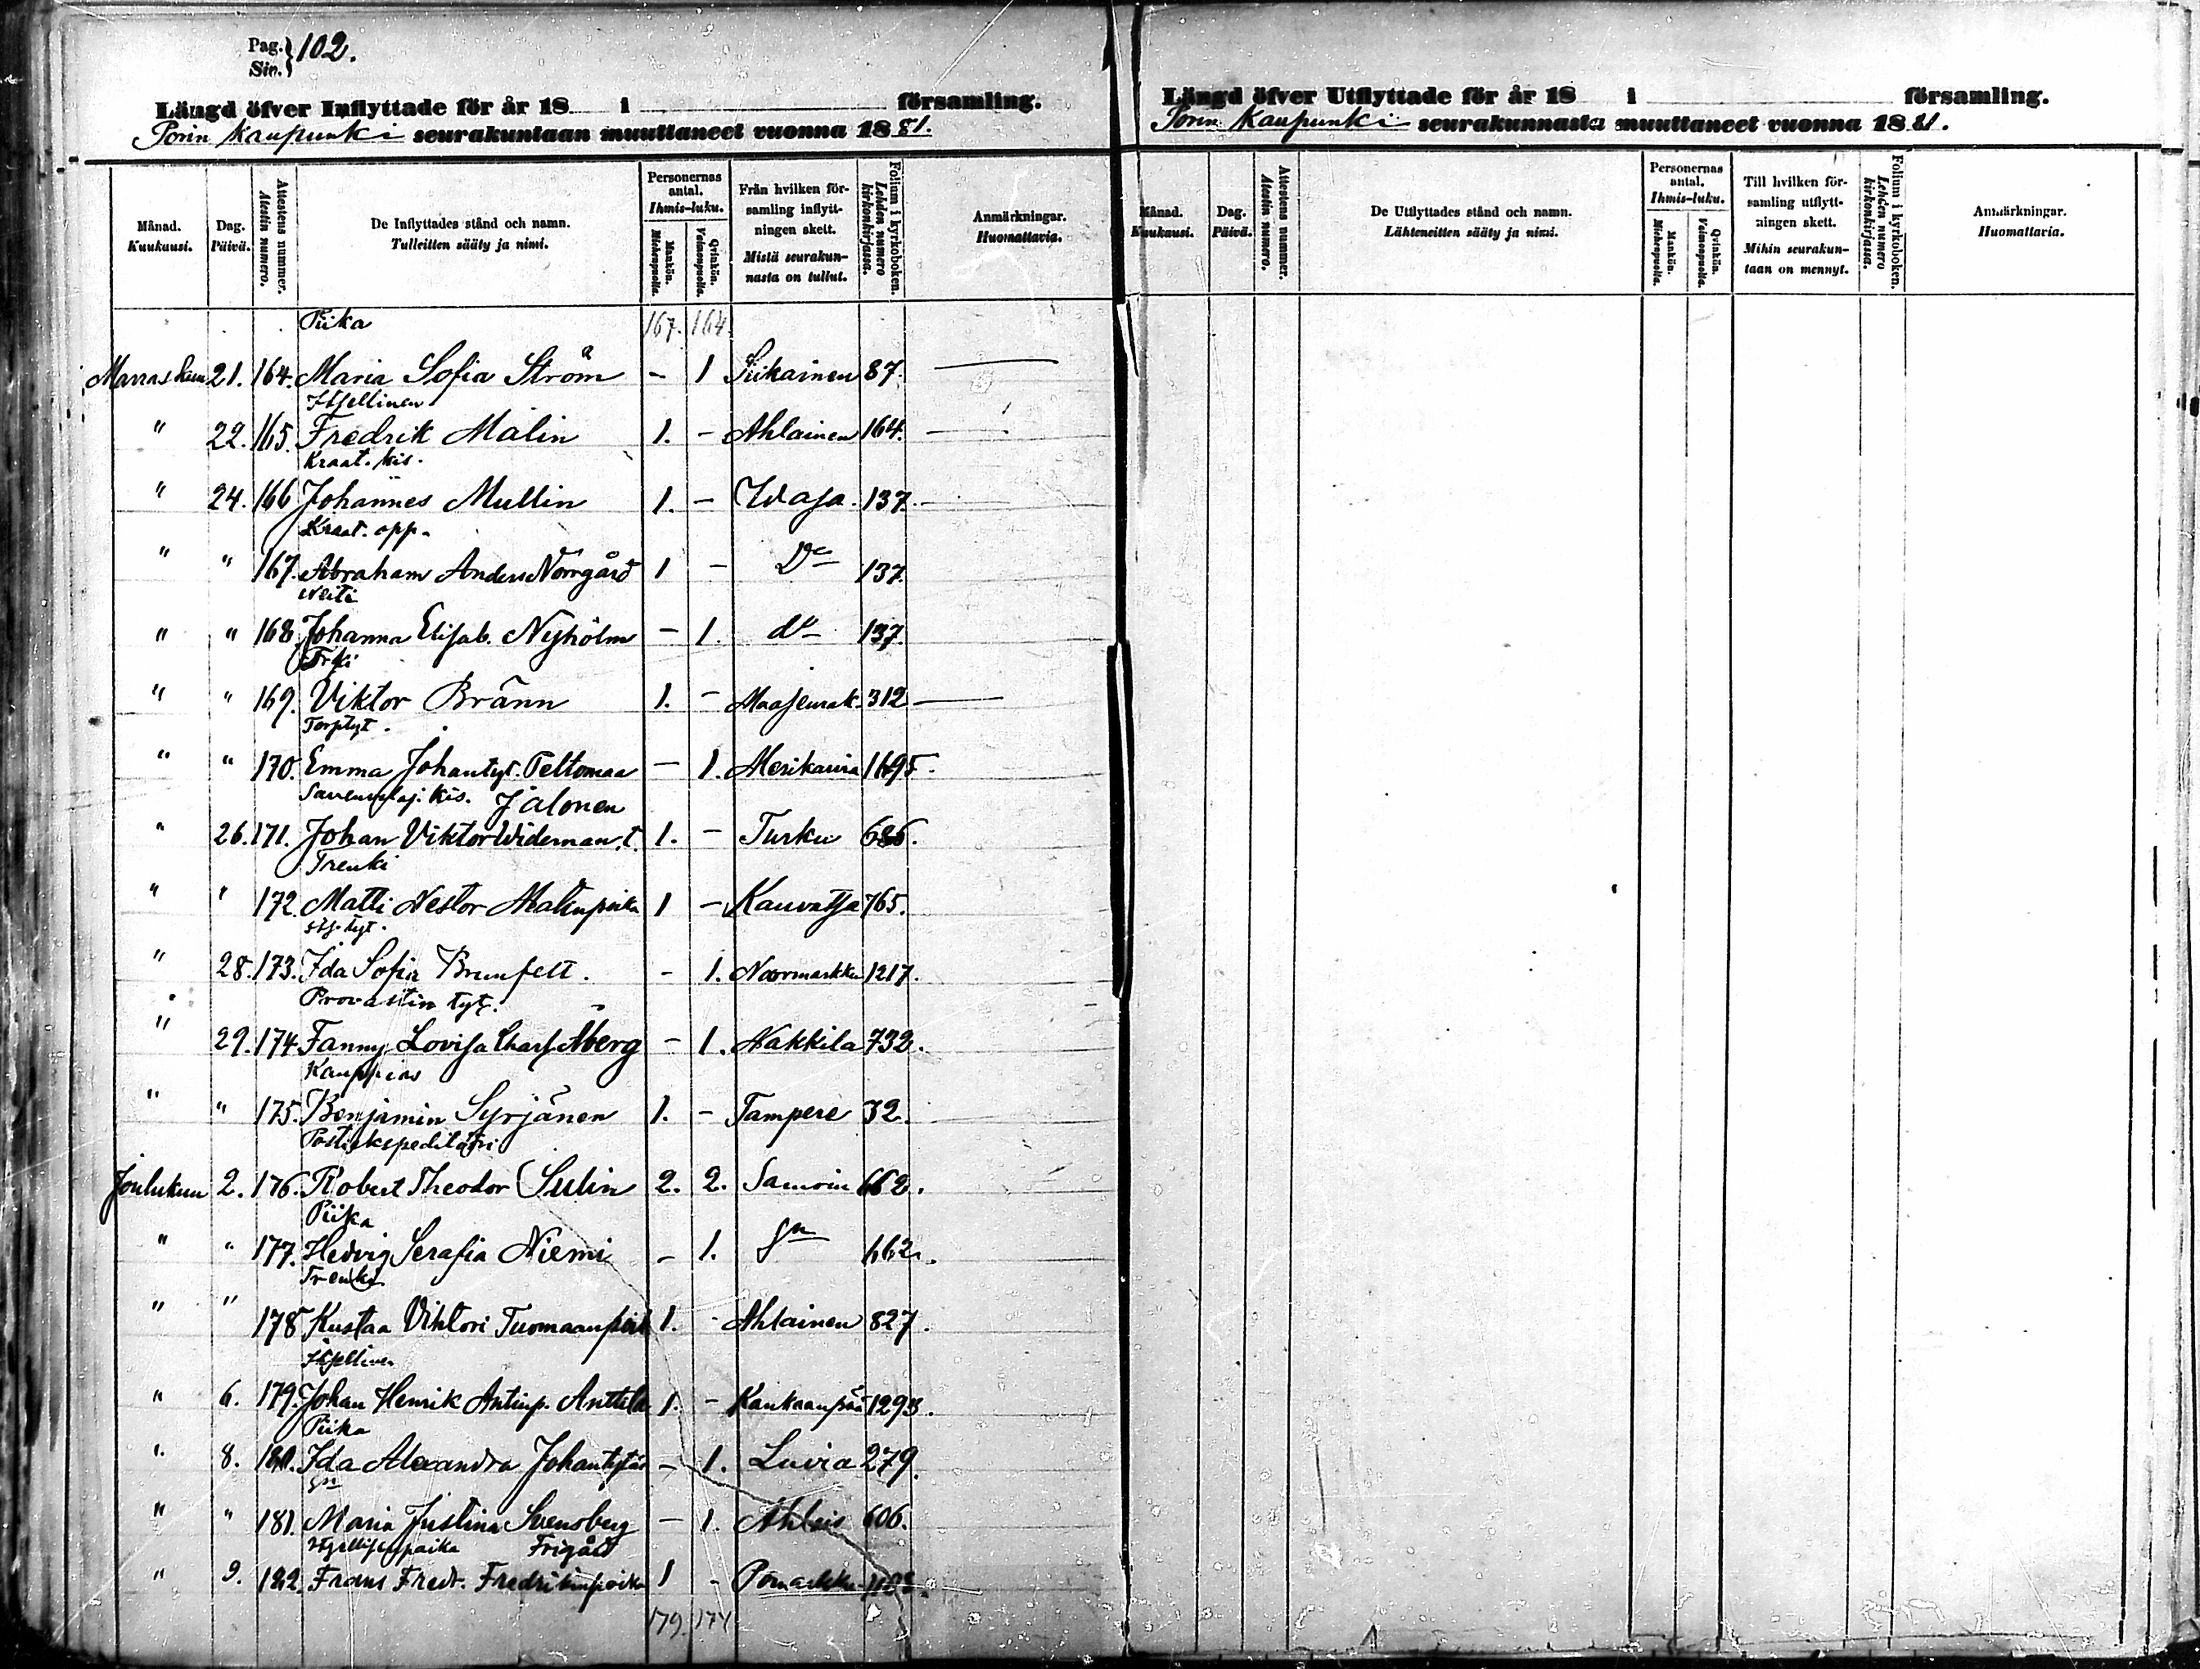 Pag. } 102.
Siv.
Längd öfver Inflyttade för år 18 i församling.
Porin Kaupunki seurakuntaan muuttaneet vuonna 1881.
Månad. Kuukausi. Dag. Päivä. Attestens nummer. Atestin numero. De Inflyttades stånd och namn. Tulleitten sääty ja nimi. Personernas antal. Ihmis-luku. Mankön. Miehenpuolia. Qvinkön. Vaimonpuolia. Från hvilken församling inflyttningen skett. Mistä seurakunnasta on tullut. Folium i kyrkoboken. Lehden numero kirkonkirjassa. Anmärkningar. Huomattavia.
Piika 167. 164.
Marraskuu 21. 164. Maria Sofia Ström - 1 Siikainen 87.
Itsellinen
" 22. 165. Fredrik Malin 1. - Ahlainen 164.
Kraat. kis.
" 24. 166 Johannes Mullin 1. - Waasa 137.
Kraat. opp.
" " 167. Abraham Anders Norrgård 1 - Do 137.
Neiti
" " 168 Johanna Elisab. Nyholm - 1. do 137.
" " 169. Viktor Bränn 1. - Maaseurak. 312
Torp.tyt.
" " 170. Emma Johantyt. Peltomaa - 1. Merikarvia 1695.
kis. Jalonen
" 26. 171. Johan Viktor Wideman. t. 1. - Turku 686.
Trenki
" " 172. Matti Nestor Matinpoika 1 - Kauvatsa 765.
its. tyt.
" 28. 173. Ida Sofia Brunfelt. - 1. Noormarkku 1217.
Provastin tyt.
" 29. 174 Fanny Lovisa Charl. Åberg - 1. Nakkila 732.
Kauppias
" " 175. Benjamin Syrjänen 1. - Tampere 32.
Postiekspeditööri
Joulukuu 2. 176. Robert Theodor Sulin 2. 2. Samoin 662.
Piika
" " 177. Hedvig Serafia Niemi - 1. Sn 662.
Trenki
" " 178 Kustaa Vihtori Tuomaanpoik 1. - Ahlainen 827.
Itsellinen
" 6. 179. Johan Henrik Antinp. Anttila 1. - Kankaanpää 1293.
Piika
" 8. 180. Ida Alexandra Johantytär - 1. Luvia 279.
Sn
" " 181. Maria Justina Svensberg - 1. Ahlais 606.
Itsellisenpoika Frigård
" 9. 182. Frans Fredr. Fredrikinpoika 1 - Pomarkku
179. 174
Längd öfver Utflyttade för år 18 i församling.
Porin Kaupunki seurakunnasta muuttaneet vuonna 1881.
Månad. Kuukausi. Dag. Päivä. Attestens nummer. Atestin numero. De Utflyttades stånd och namn. Lähteneitten sääty ja nimi. Personernas antal. Ihmis-luku. Mankön. Miehenpuolia. Qvinkön. Vaimonpuolia. Till hvilken församling utflyttningen skett. Mihin seurakuntaan on mennyt. Folium i kyrkoboken. Lehden numero kirkonkirjassa. Anmärkningar. Huomattavia.